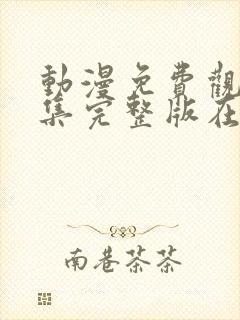 動漫免費觀
集完整版在
南巷茶茶